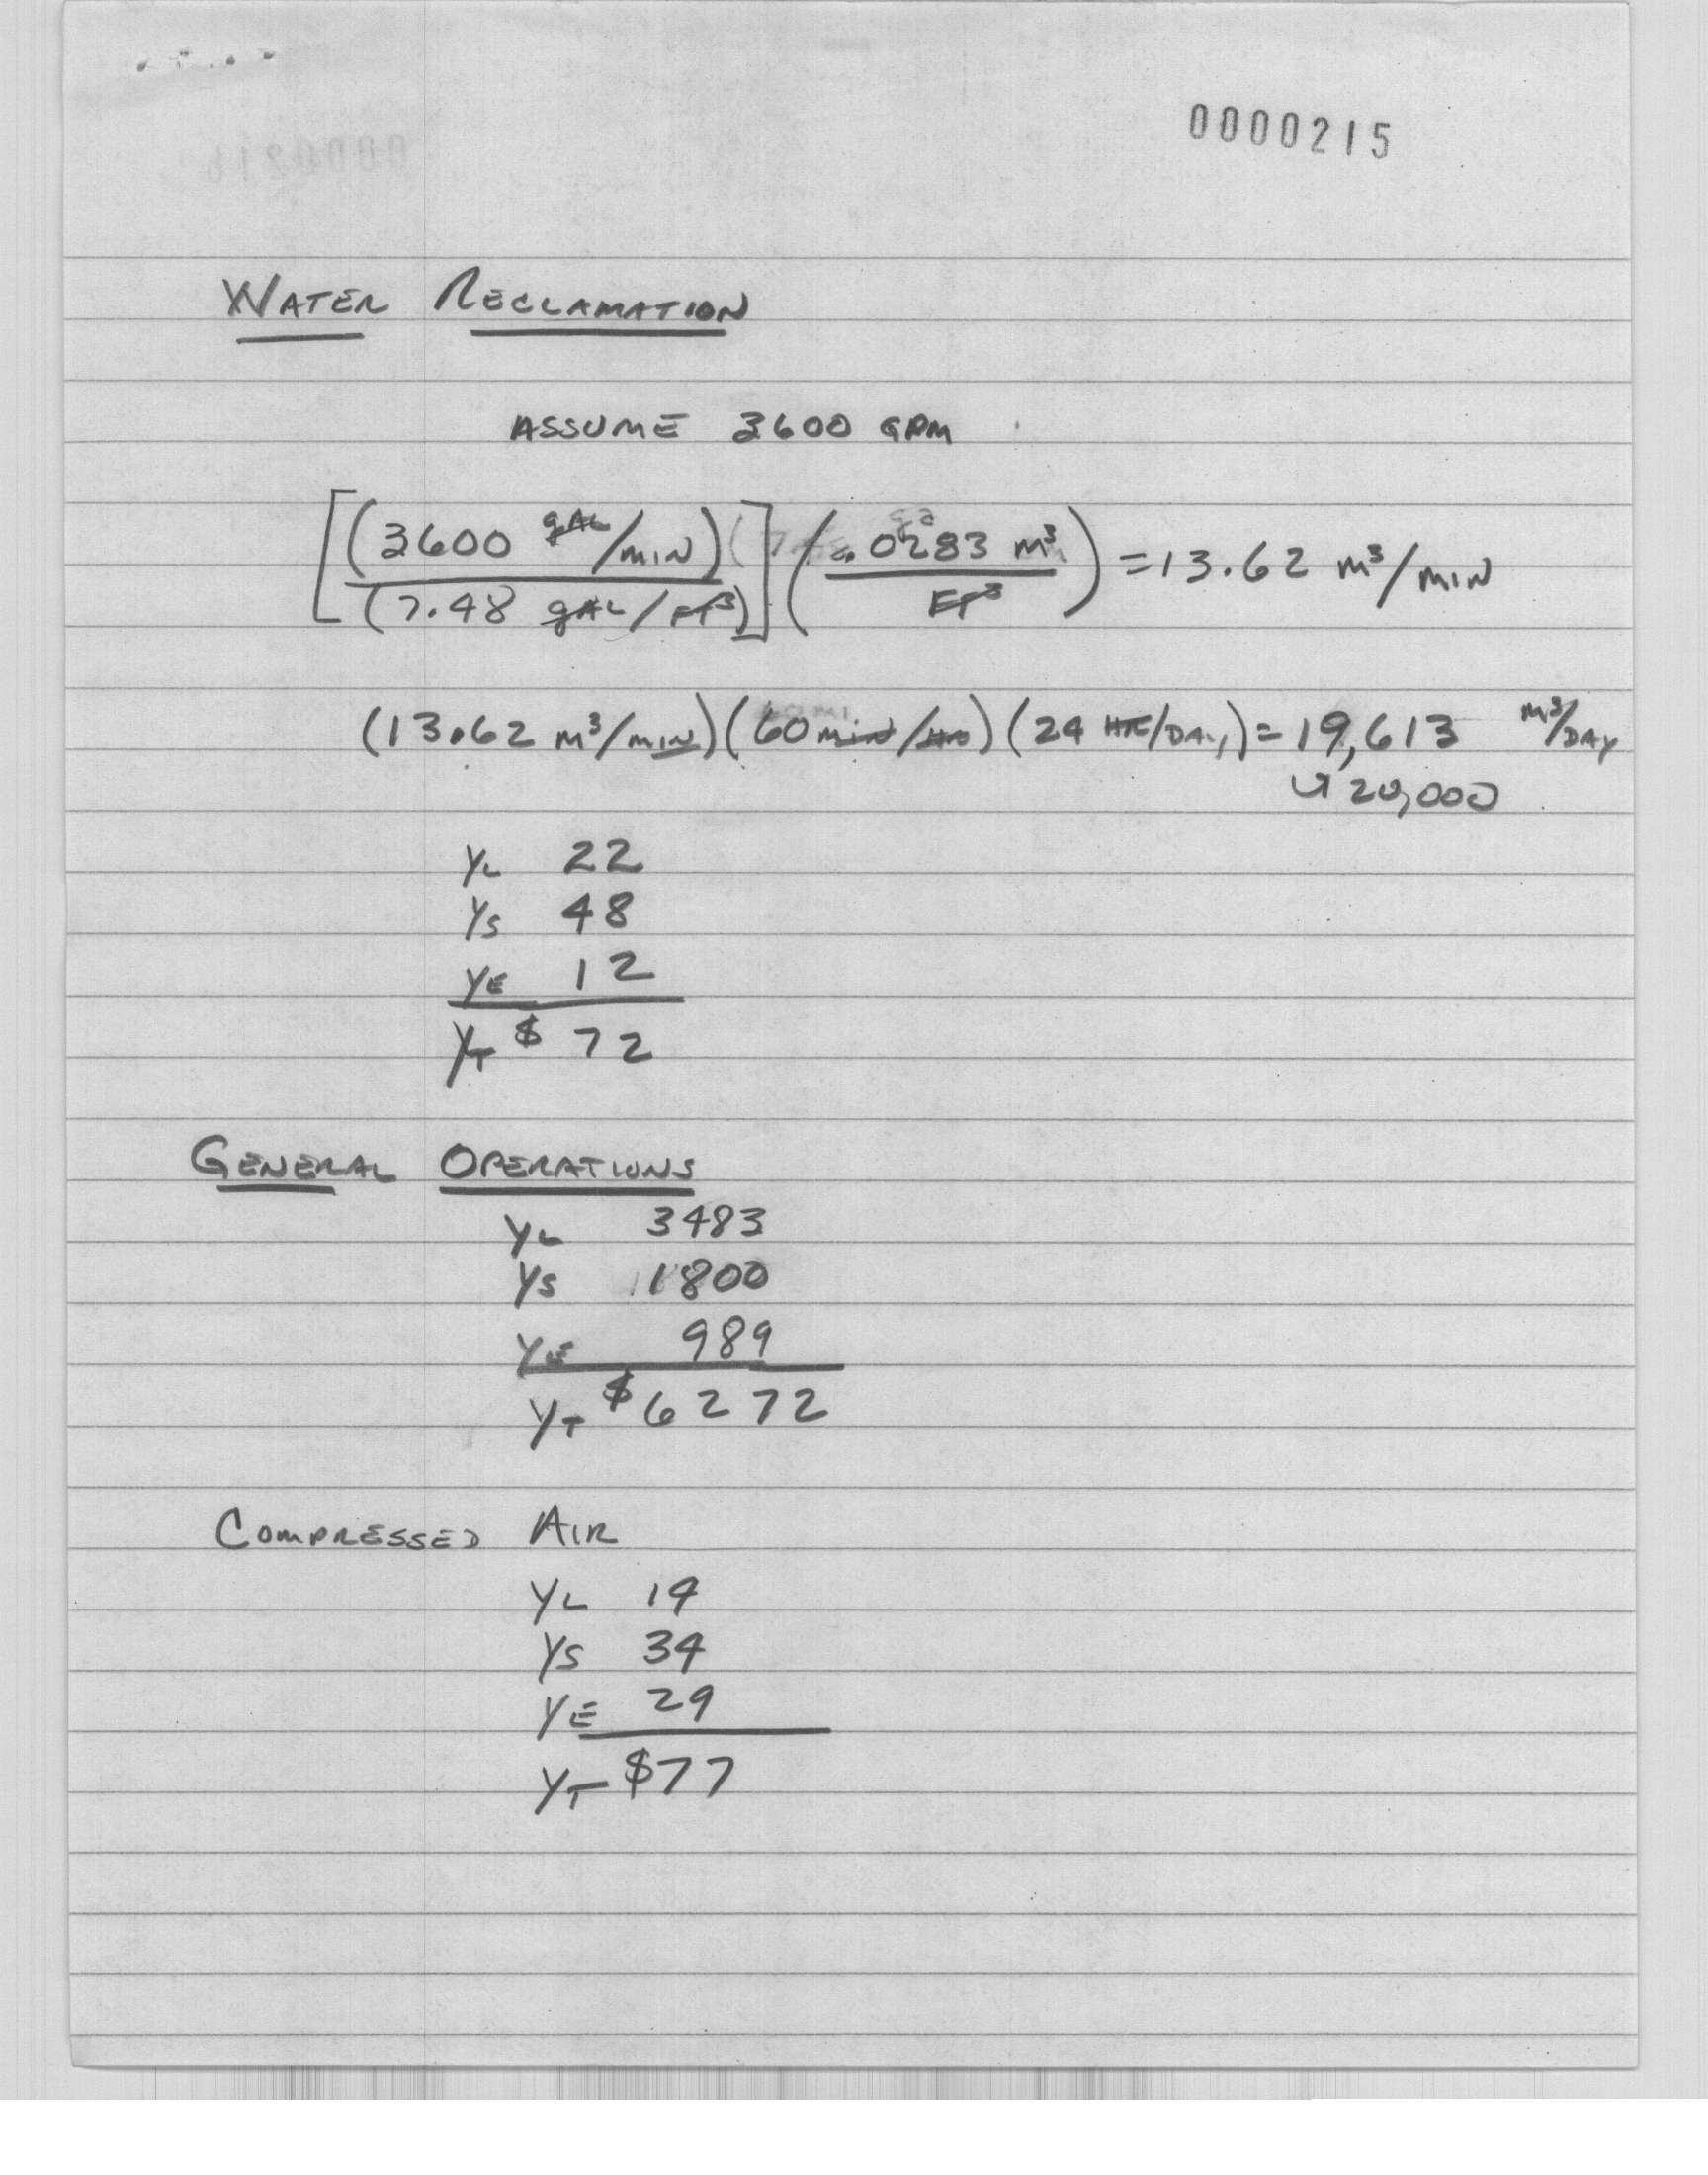 0000215
WATER RECLAMATION
ASSUME 3600 GPM
[(3600 gAL/MIN) / (7.48 gAL/FT³)] (.0283 m³ / FT³) = 13.62 m³/MIN
(13.62 m³/MIN)(60 MIN/HR)(24 HR/DAY) = 19,613 m³/DAY
↳ 20,000
YL 22
YS 48
YE 12
YT $ 72
GENERAL OPERATIONS
YL 3483
YS 1800
YE 989
YT $6272
COMPRESSED AIR
YL 14
YS 34
YE 29
YT $77